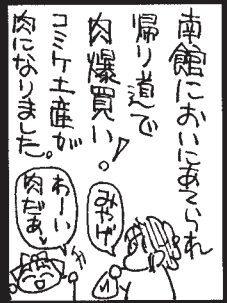 南館においにあてられ
帰り道で
肉爆買い！
コミケ土産が
肉になりました。
みやげ
わーい
肉だぁ